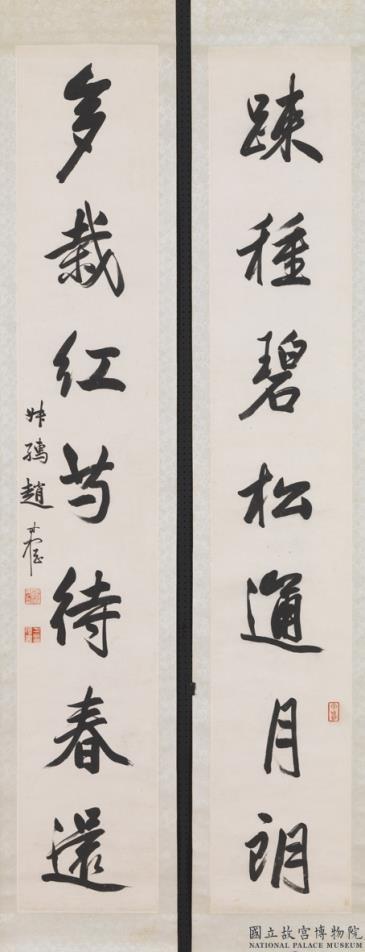 疎種碧松通月朗
多栽紅芍待春還
叔孺趙時棡
國立故宮博物院
NATIONAL PALACE MUSEUM